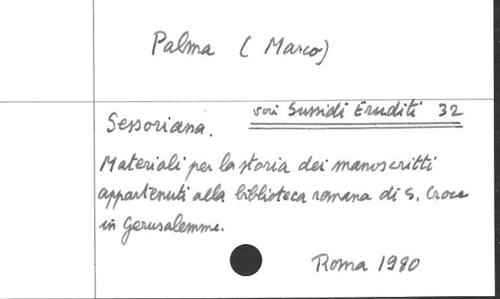 Palma (Marco)
Sessoriana.
Sussidi Eruditi 32
Materiali per la storia dei manoscritti
appartenuti alla biblioteca romana di S. Croce
in Gerusalemme.
Roma 1980